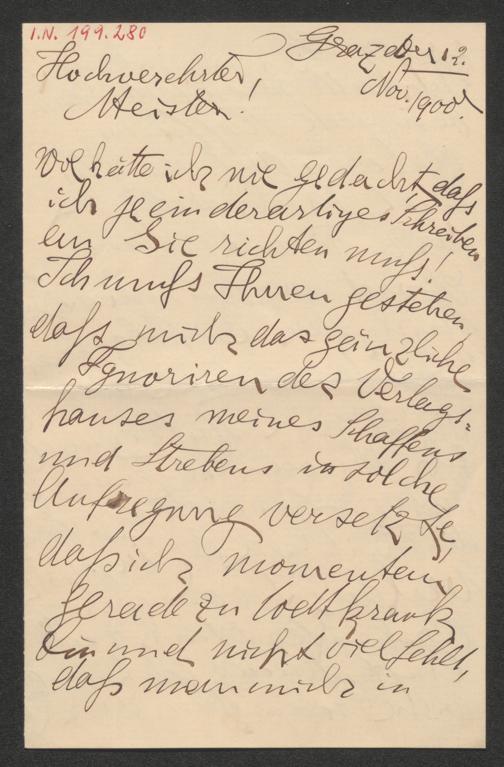 I.N. 199.280
Graz den 12.
Nov. 1900.
Hochverehrter,
Meister!
Wol hätte ich nie gedacht, daß
ich je ein derartiges Schreiben
an Sie richten muß!
Ich muß Ihnen gestehen,
daß mich das gänzliche
Ignoriren des Verlags-
hauses meines Schaffens
und Strebens in solche
Aufregung versetzte,
daß ich momentan
geradezu todtkrank
bin und nicht viel fehlt,
daß man mich in